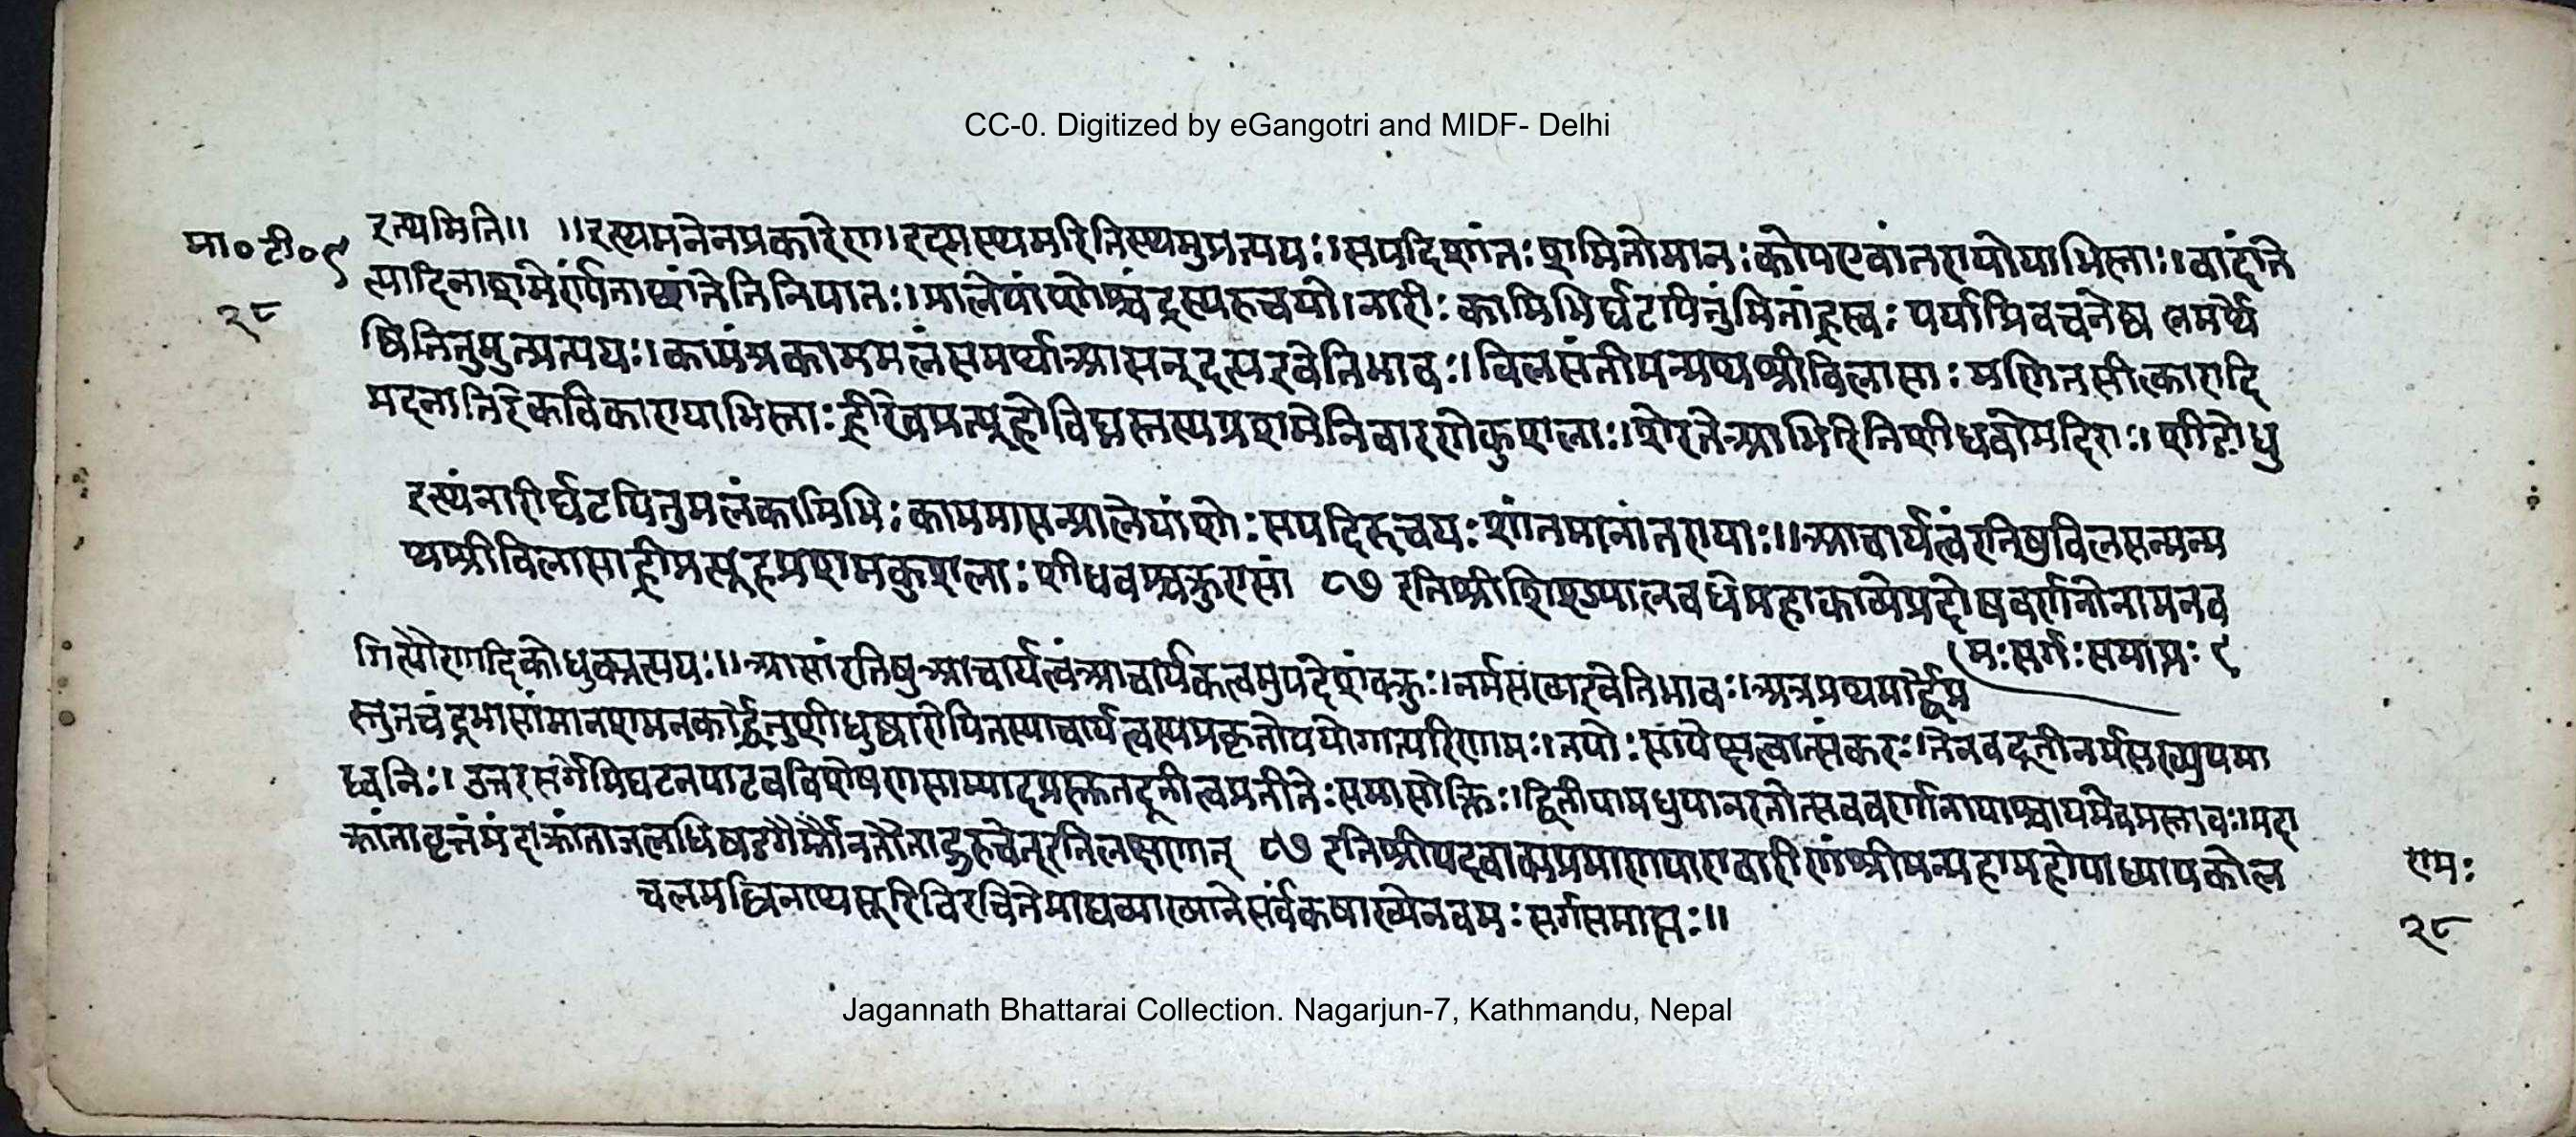 CC-0. Digitized by eGangotri and MIDF- Delhi
मा०टी०९
२८
इत्थमिति॥ ॥इत्थमनेनप्रकारेण।इदमस्थमुरितिस्थमुप्रत्ययः।सपदिशांतःशमितोमानःकोपएवांतरायोयाभिस्ताः।वादांते
त्यादिनाशमेर्ण्यंताच्छांतेतिनिपातः।प्रालेयांशोश्चंद्रस्यरुचयो।नारीःकामिभिर्घटयितुंमितांह्रस्वःपर्याप्तिवचनेष्वलमर्थे
ष्वितितुमुन्प्रत्ययः।कामंप्रकाममलंसमर्थाआसन्दूत्यइवेतिभावः।विलसंतीमन्मथश्रीविलासाःमणितसीत्कारादि
मदनातिरेकविकारायाभिस्ताःह्रीरेवप्रत्यूहोविघ्नस्तस्यप्रशमेनिवारणेकुशलाः।शेरतेआभिरितिशीधवोमदिराः।शीङोधु
इत्थंनारीर्घटयितुमलंकामिभिःकाममासन्प्रालेयांशोःसपदिरुचयःशांतमानांतरायाः॥आचार्यत्वंरतिषुविलसन्मन्म
थश्रीविलासाह्रीप्रत्यूहप्रशमकुशलाःशीधवश्चक्रुरासां ८७ इतिश्रीशिशुपालवधेमहाकाव्येप्रदोषवर्णनोनामनव
मःसर्गःसमाप्तः ९
गित्यौणादिकोधुक्प्रत्ययः॥आसांरतिषुआचार्यत्वंआचार्यकत्वमुपदेशंचक्रुः।नर्मसख्यइवेतिभावः।अत्रप्रथमार्द्धेप्र
स्तुतचंद्रभासांमानशमनकार्द्धेतुशीधुष्वारोपितस्याचार्यत्वस्यप्रकृतोपयोगात्परिणामः।तयोःसापेक्षत्वात्संकरः।तेनवदूतीनर्मसख्युपमा
ध्वनिः।उत्तरसर्गेमिघटनपाटवविशेषणसाम्यादप्रस्तुतदूतीत्वप्रतीतेःसमासोक्तिः।द्वितीयामधुपानरतोत्सववर्णनायाश्चायमेवप्रस्तावः।मंदा
क्रांतावृत्तंमंदाक्रांताजलधिषडगैर्म्भौनतौताद्गुरूचेत्इतिलक्षणात् ८७ इतिश्रीपदवाक्यप्रमाणपारावारीणश्रीमन्महामहोपाध्यायकोल
चलमल्लिनाथसूरिविरचितेमाघव्याख्यानेसर्वंकषाख्येनवमःसर्गसमाप्तः॥
रामः
२८
Jagannath Bhattarai Collection. Nagarjun-7, Kathmandu, Nepal